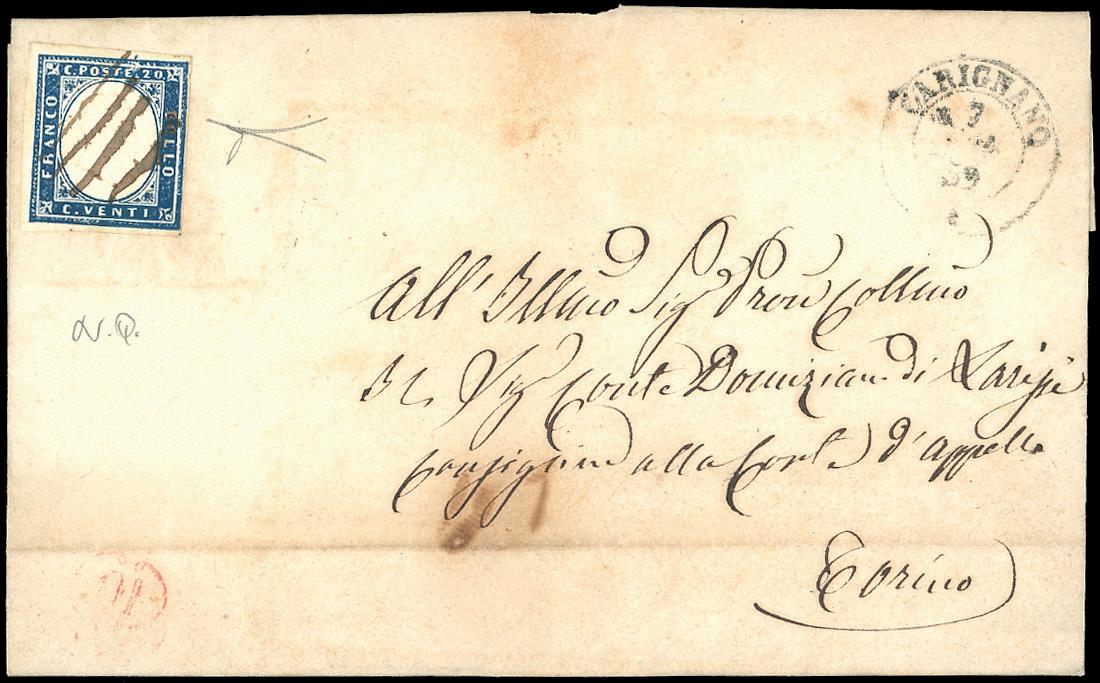 C. POSTE. 20.
FRANCO
BOLLO
C. VENTI
CARIGNANO
7
59
All' Illmo Sig Pron Collmo
Il Sig Conte Domiziano di
alla Corte d'appello
Torino